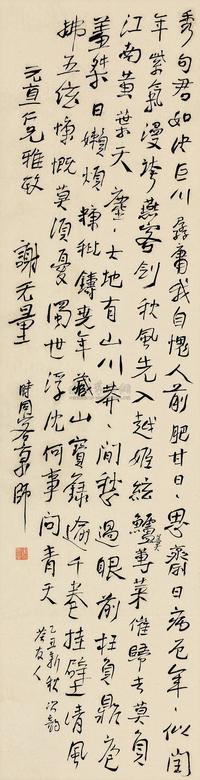 秀句君如決巨川尋常我自愧人前肥甘日〻思齋日病厄年〻似閏
年紫氣漫誇燕客劍秋風先入越姬絃鱸蓴菜催歸去莫負
江南黃葉天塵〻土地有山川莽〻閒愁過眼前枉負鼎庖
羞桀日嬾煩糠秕鑄堯年藏山寶錄逾千卷挂壁清風
拂五絃慷慨莫須憂濁世浮沈何事問青天
乙丑新秋次韵
答友人
元直仁兄雅教
謝无量
時同客京師